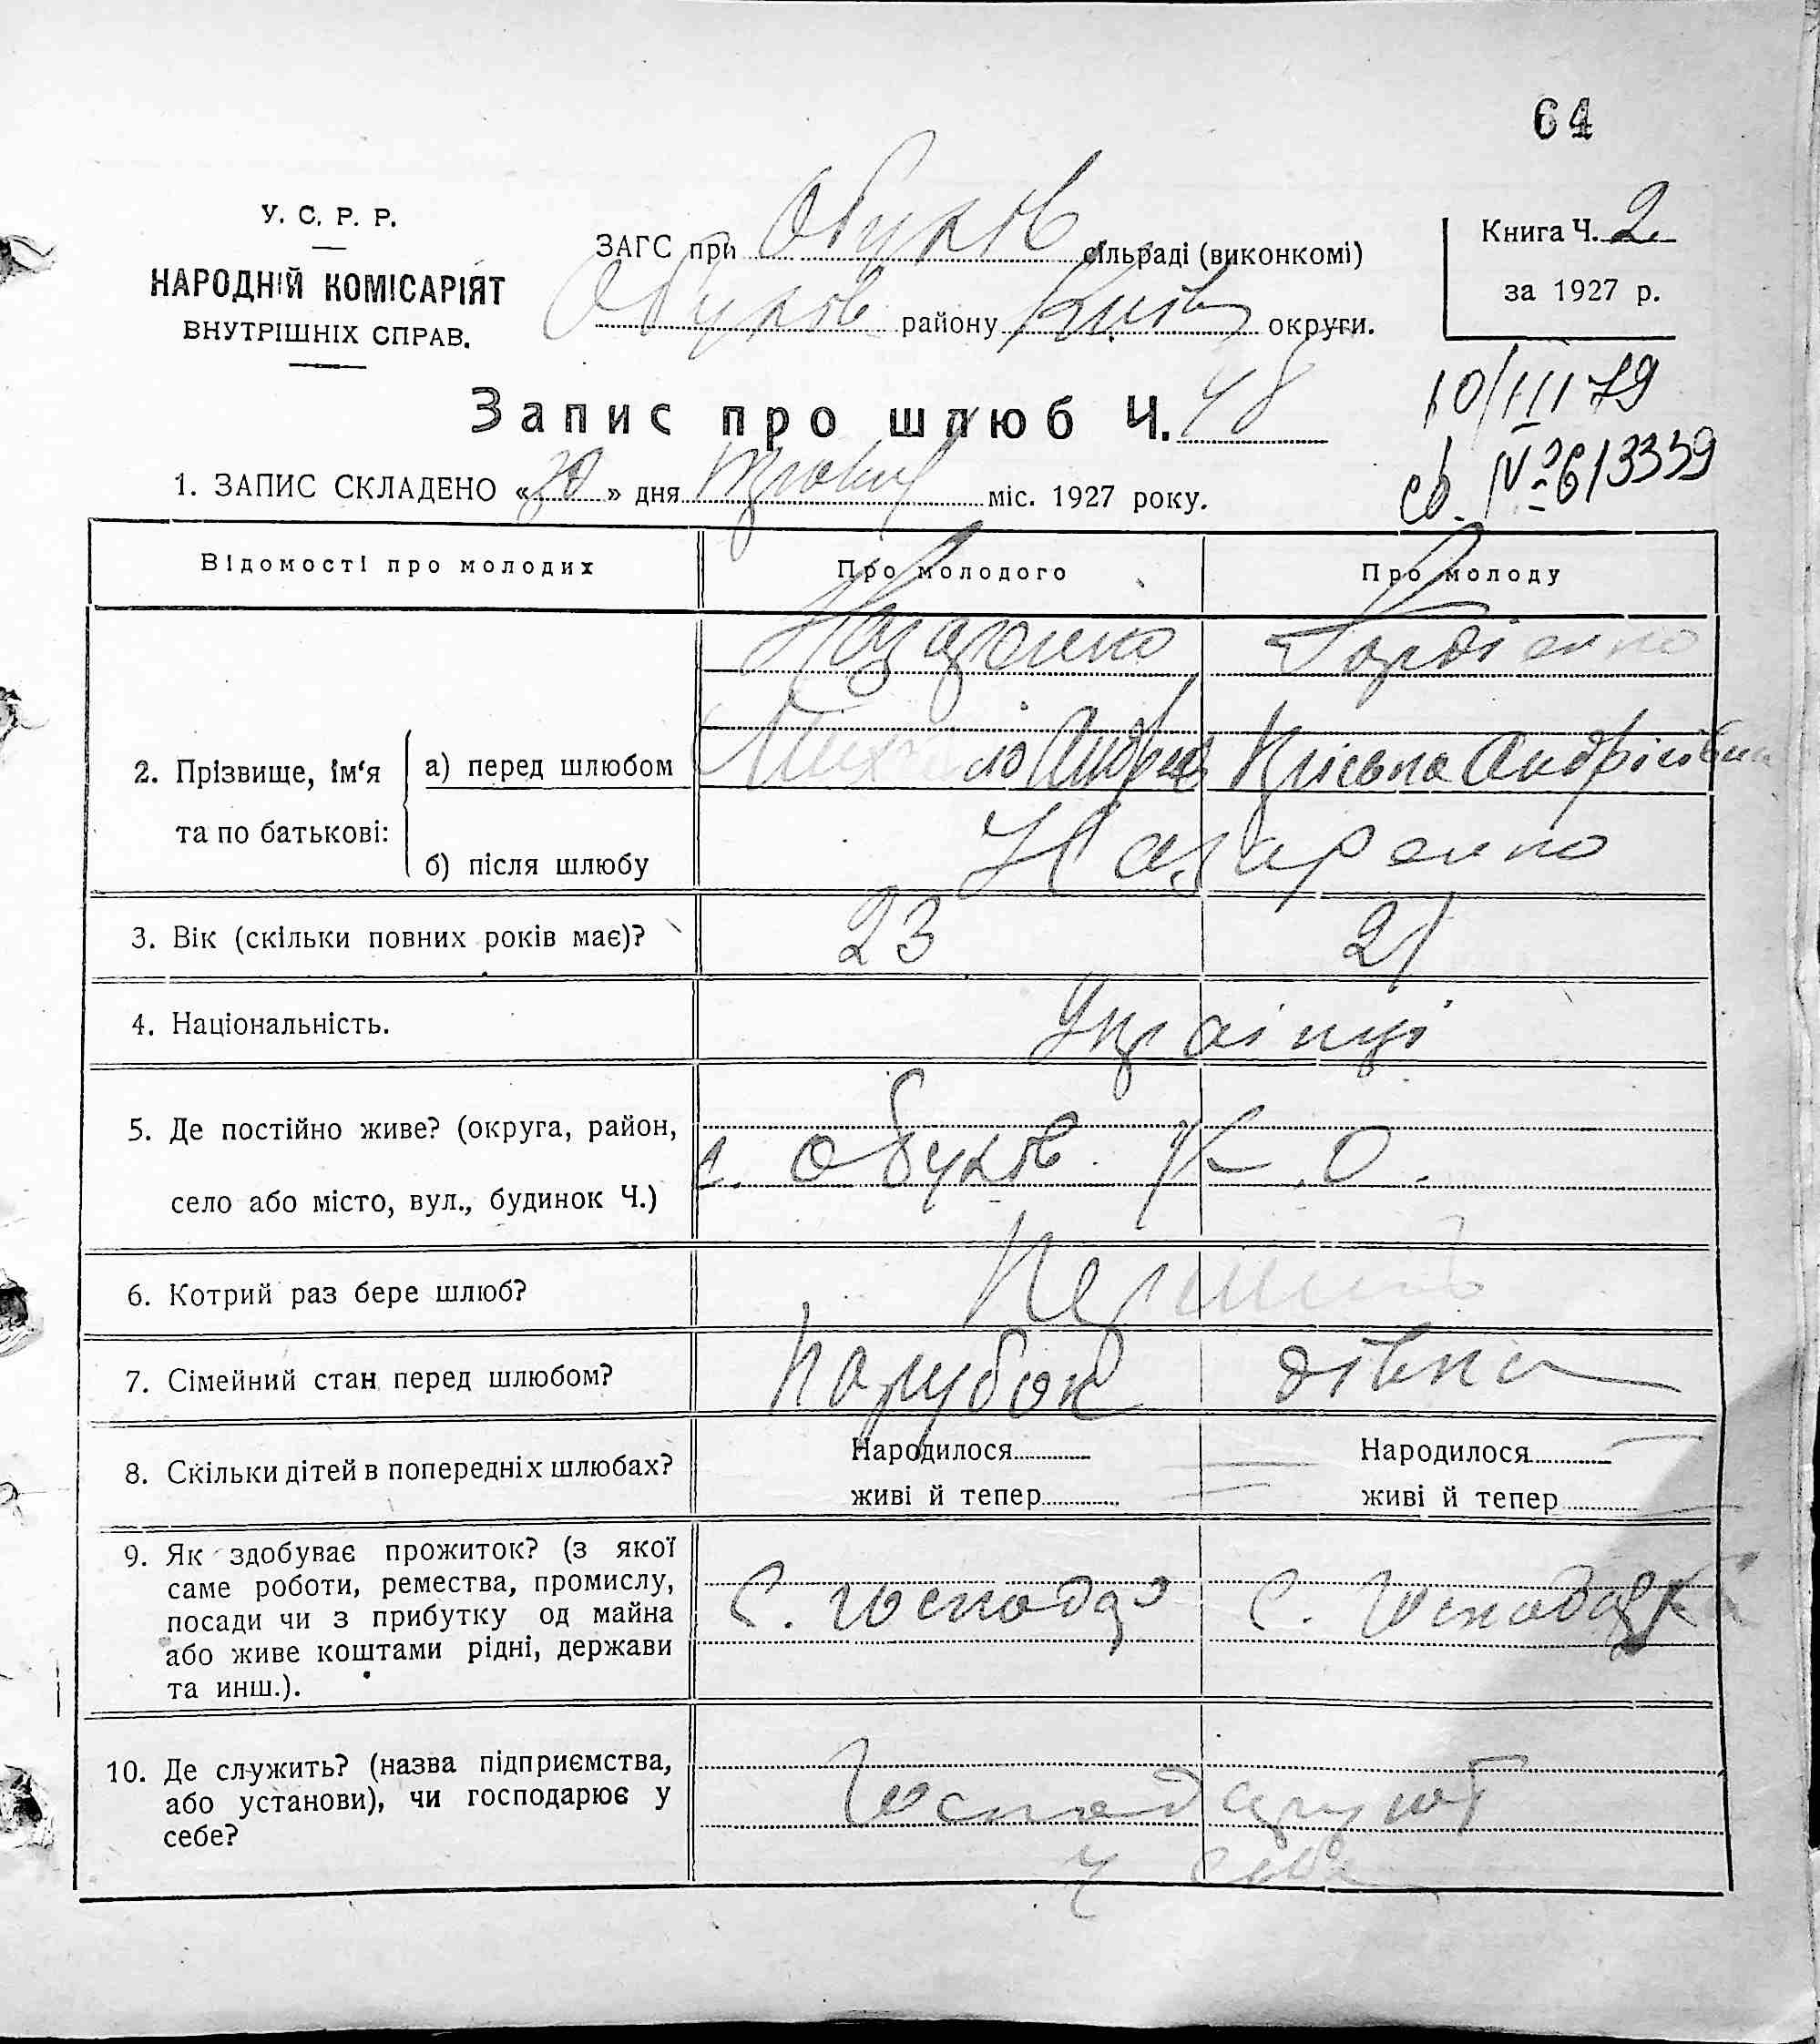 64
У. С. Р. Р.
НАРОДНІЙ КОМІСАРІЯТ
ВНУТРІШНІХ СПРАВ.
ЗАГС при Обухів сільраді (виконкомі)
Обухів району Київ округи.
Книга Ч. 2
за 1927 р.
Запис про шлюб Ч. 48
10/III 79
св. № 613339
1. ЗАПИС СКЛАДЕНО « » дня міс. 1927 року.
Відомості про молодих Про молодого Про молоду
Назаренко Гордієнко
2. Прізвище, ім‘я та по батькові:
а) перед шлюбом
Михайло Андрій Андріївна
б) після шлюбу
Назаренко
3. Вік (скільки повних років має)? 23 21
4. Національність. Українці
5. Де постійно живе? (округа, район,
село або місто, вул., будинок Ч.)
с. Обухів К. О.
6. Котрий раз бере шлюб?
7. Сімейний стан перед шлюбом? Парубок дівка
8. Скільки дітей в попередніх шлюбах?
Народилося Народилося
живі й тепер живі й тепер
9. Як здобуває прожиток? (з якої
саме роботи, ремества, промислу,
посади чи з прибутку од майна
або живе коштами рідні, держави
та инш.).
С. господар С. господарка
10. Де служить? (назва підприємства,
або установи), чи господарює у
себе?
Господарюют
у себе